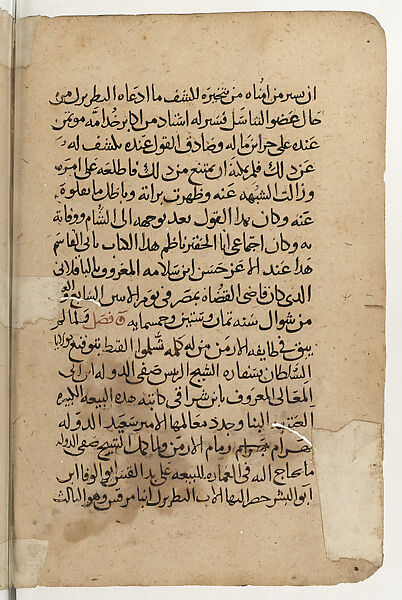 ان يسير من امناه من يتخيره للشف ما ادعاه البطريرك من
حال بعضو الناسل فسير له استاد من اكابر خدامه موتمن
عنده على حراير ماله وصادق القول عنده بكشف له
عن ذلك فلم يمكنه ان يمتنع من ذلك فاطلعه على امره
وزالت الشبهه عنه وظهرت براته وباطل ما يقلوه
عنه وكان بدا القول بعد توجهه الى الشام ووفاته
به وكان اجتماعى انا الحقير ناظم هذا الكتاب بابى القاسم
هذا عند الاعز حسن ابن سلامه المعروف بالباقلانى
الذى كان قاضى القضاه بمصر فى يوم الاثنين السابع
من شوال سنه ثمان وستين وخمسمايه فصل ولما لم
يبق فى طايفه الارمن من له كلمه تسلموا القبط بتوقيع
السلطان بسفاره الشيخ الريس صفى الدوله ابن ابى
المعالى المعروف بابن شرافى كاتبه هذه البيعه الكبيره
البنا وجدد معالمها الامير سعيد الدوله
بهرام زمام الارمن ولما كمل الشيخ صفى الدوله
ما يحتاج اليه فى العماره للبيعه على يد القس ابو الوفا ابن
ابو البشر حضر اليها الاب البطريرك انبا مرقس وهو الثالث